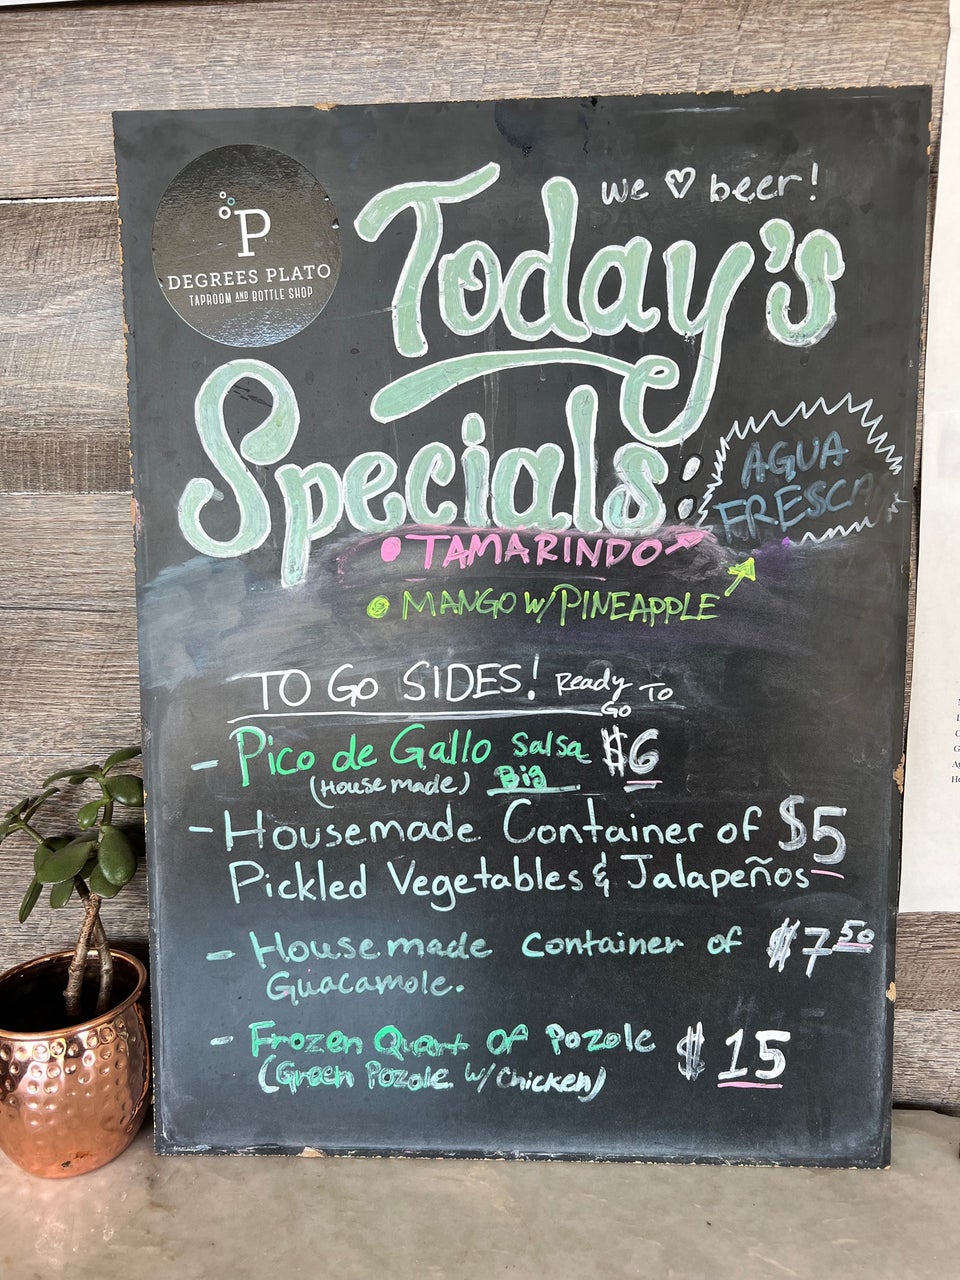 we ♡ beer!
°P
DEGREES PLATO
TAPROOM AND BOTTLE SHOP
Today's
Specials:
AGUA
FRESCA
• TAMARINDO
• MANGO w/ PINEAPPLE
TO GO SIDES! Ready To Go
- Pico de Gallo Salsa $6
(House made) Big
- Housemade Container of $5
Pickled Vegetables & Jalapeños
- Housemade Container of $7 50
Guacamole.
- Frozen Quart of Pozole $15
(Green Pozole w/ Chicken)